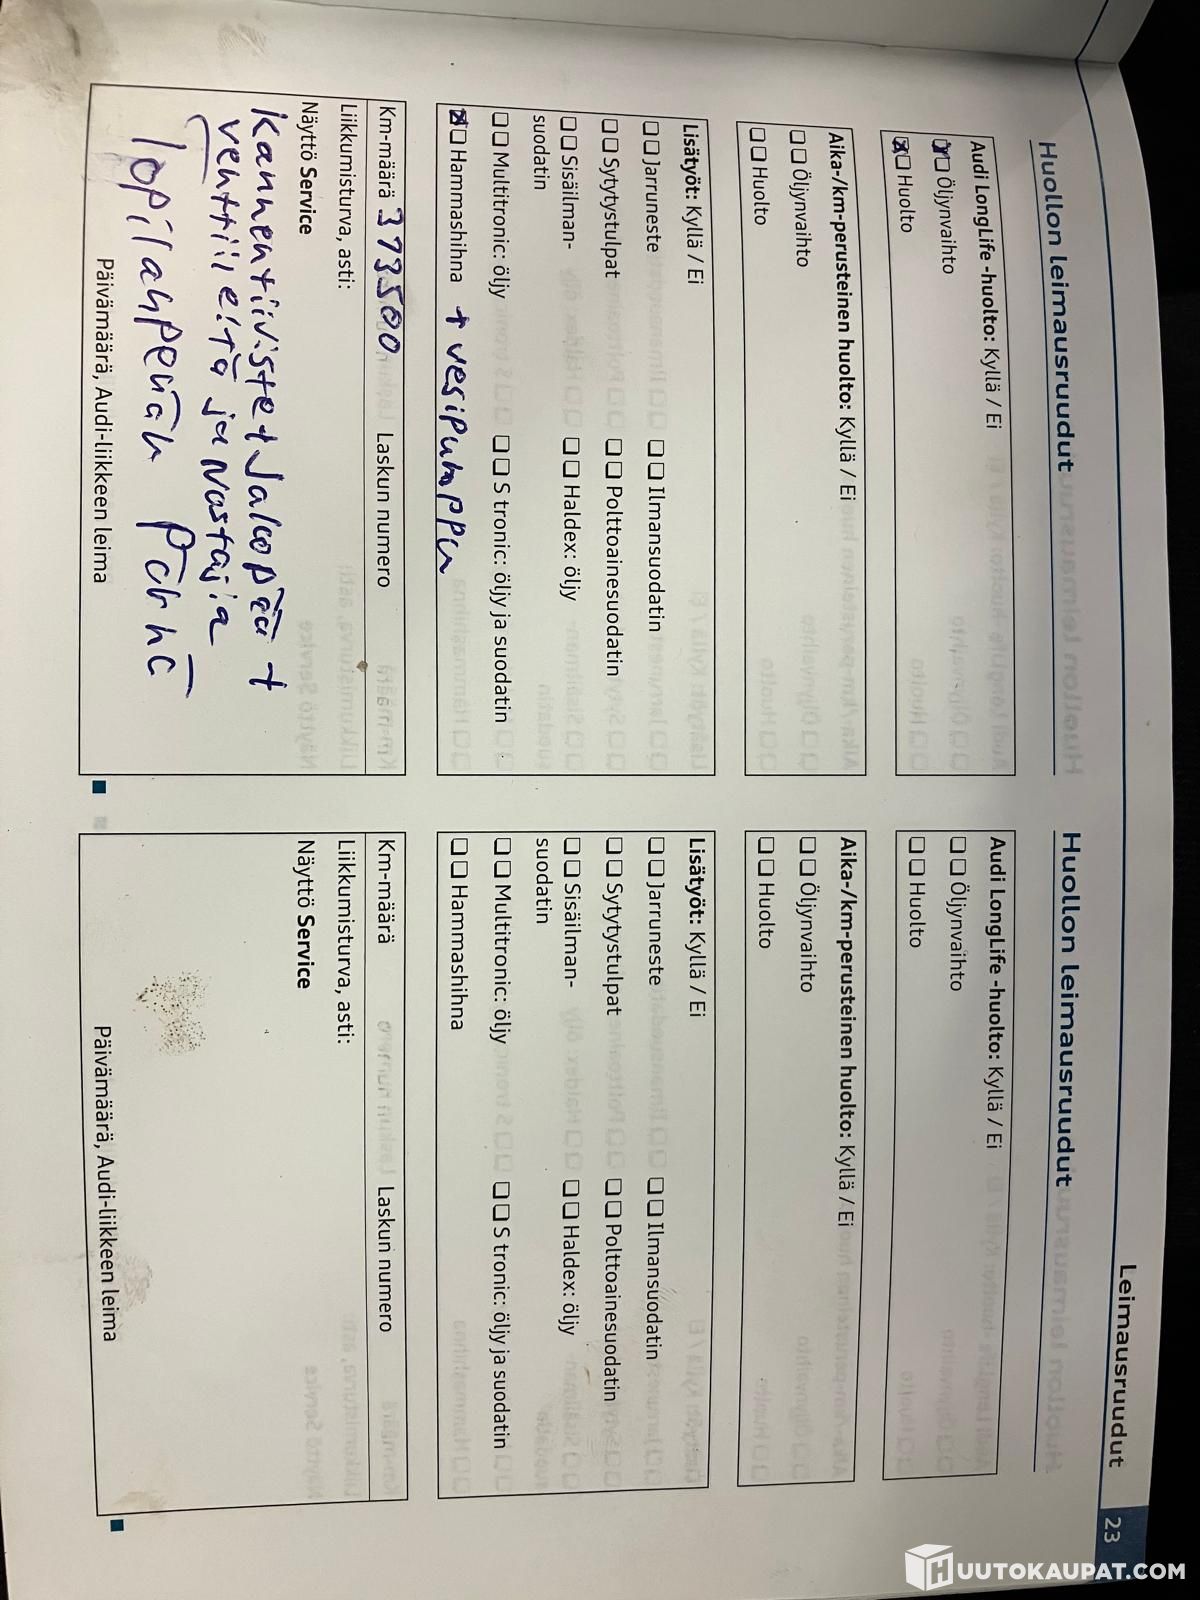 Leimausruudut
23
Huollon leimausruudut
Audi LongLife -huolto: Kyllä / Ei
Öljynvaihto
Huolto
Aika-/km-perusteinen huolto: Kyllä / Ei
Öljynvaihto
Huolto
Lisätyöt: Kyllä / Ei
Jarruneste
Ilmansuodatin
Sytytystulpat
Polttoainesuodatin
Sisäilman-
suodatin
Haldex: öljy
Multitronic: öljy
S tronic: öljy ja suodatin
Hammashihna + vesipumppu
Km-määrä 373500
Laskun numero
Liikkumisturva, asti:
Näyttö Service
Kannentiiviste + Jakopää +
venttiileitä ja Nostajia
Päivämäärä, Audi-liikkeen leima
Huollon leimausruudut
Audi LongLife -huolto: Kyllä / Ei
Öljynvaihto
Huolto
Aika-/km-perusteinen huolto: Kyllä / Ei
Öljynvaihto
Huolto
Lisätyöt: Kyllä / Ei
Jarruneste
Ilmansuodatin
Sytytystulpat
Polttoainesuodatin
Sisäilman-
suodatin
Haldex: öljy
Multitronic: öljy
S tronic: öljy ja suodatin
Hammashihna
Km-määrä
Laskun numero
Liikkumisturva, asti:
Näyttö Service
Päivämäärä, Audi-liikkeen leima
HUUTOKAUPAT.COM